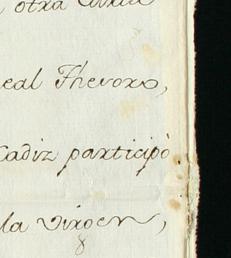 otra
eal Thevoro,
Cadiz participò
la Viroen,
8